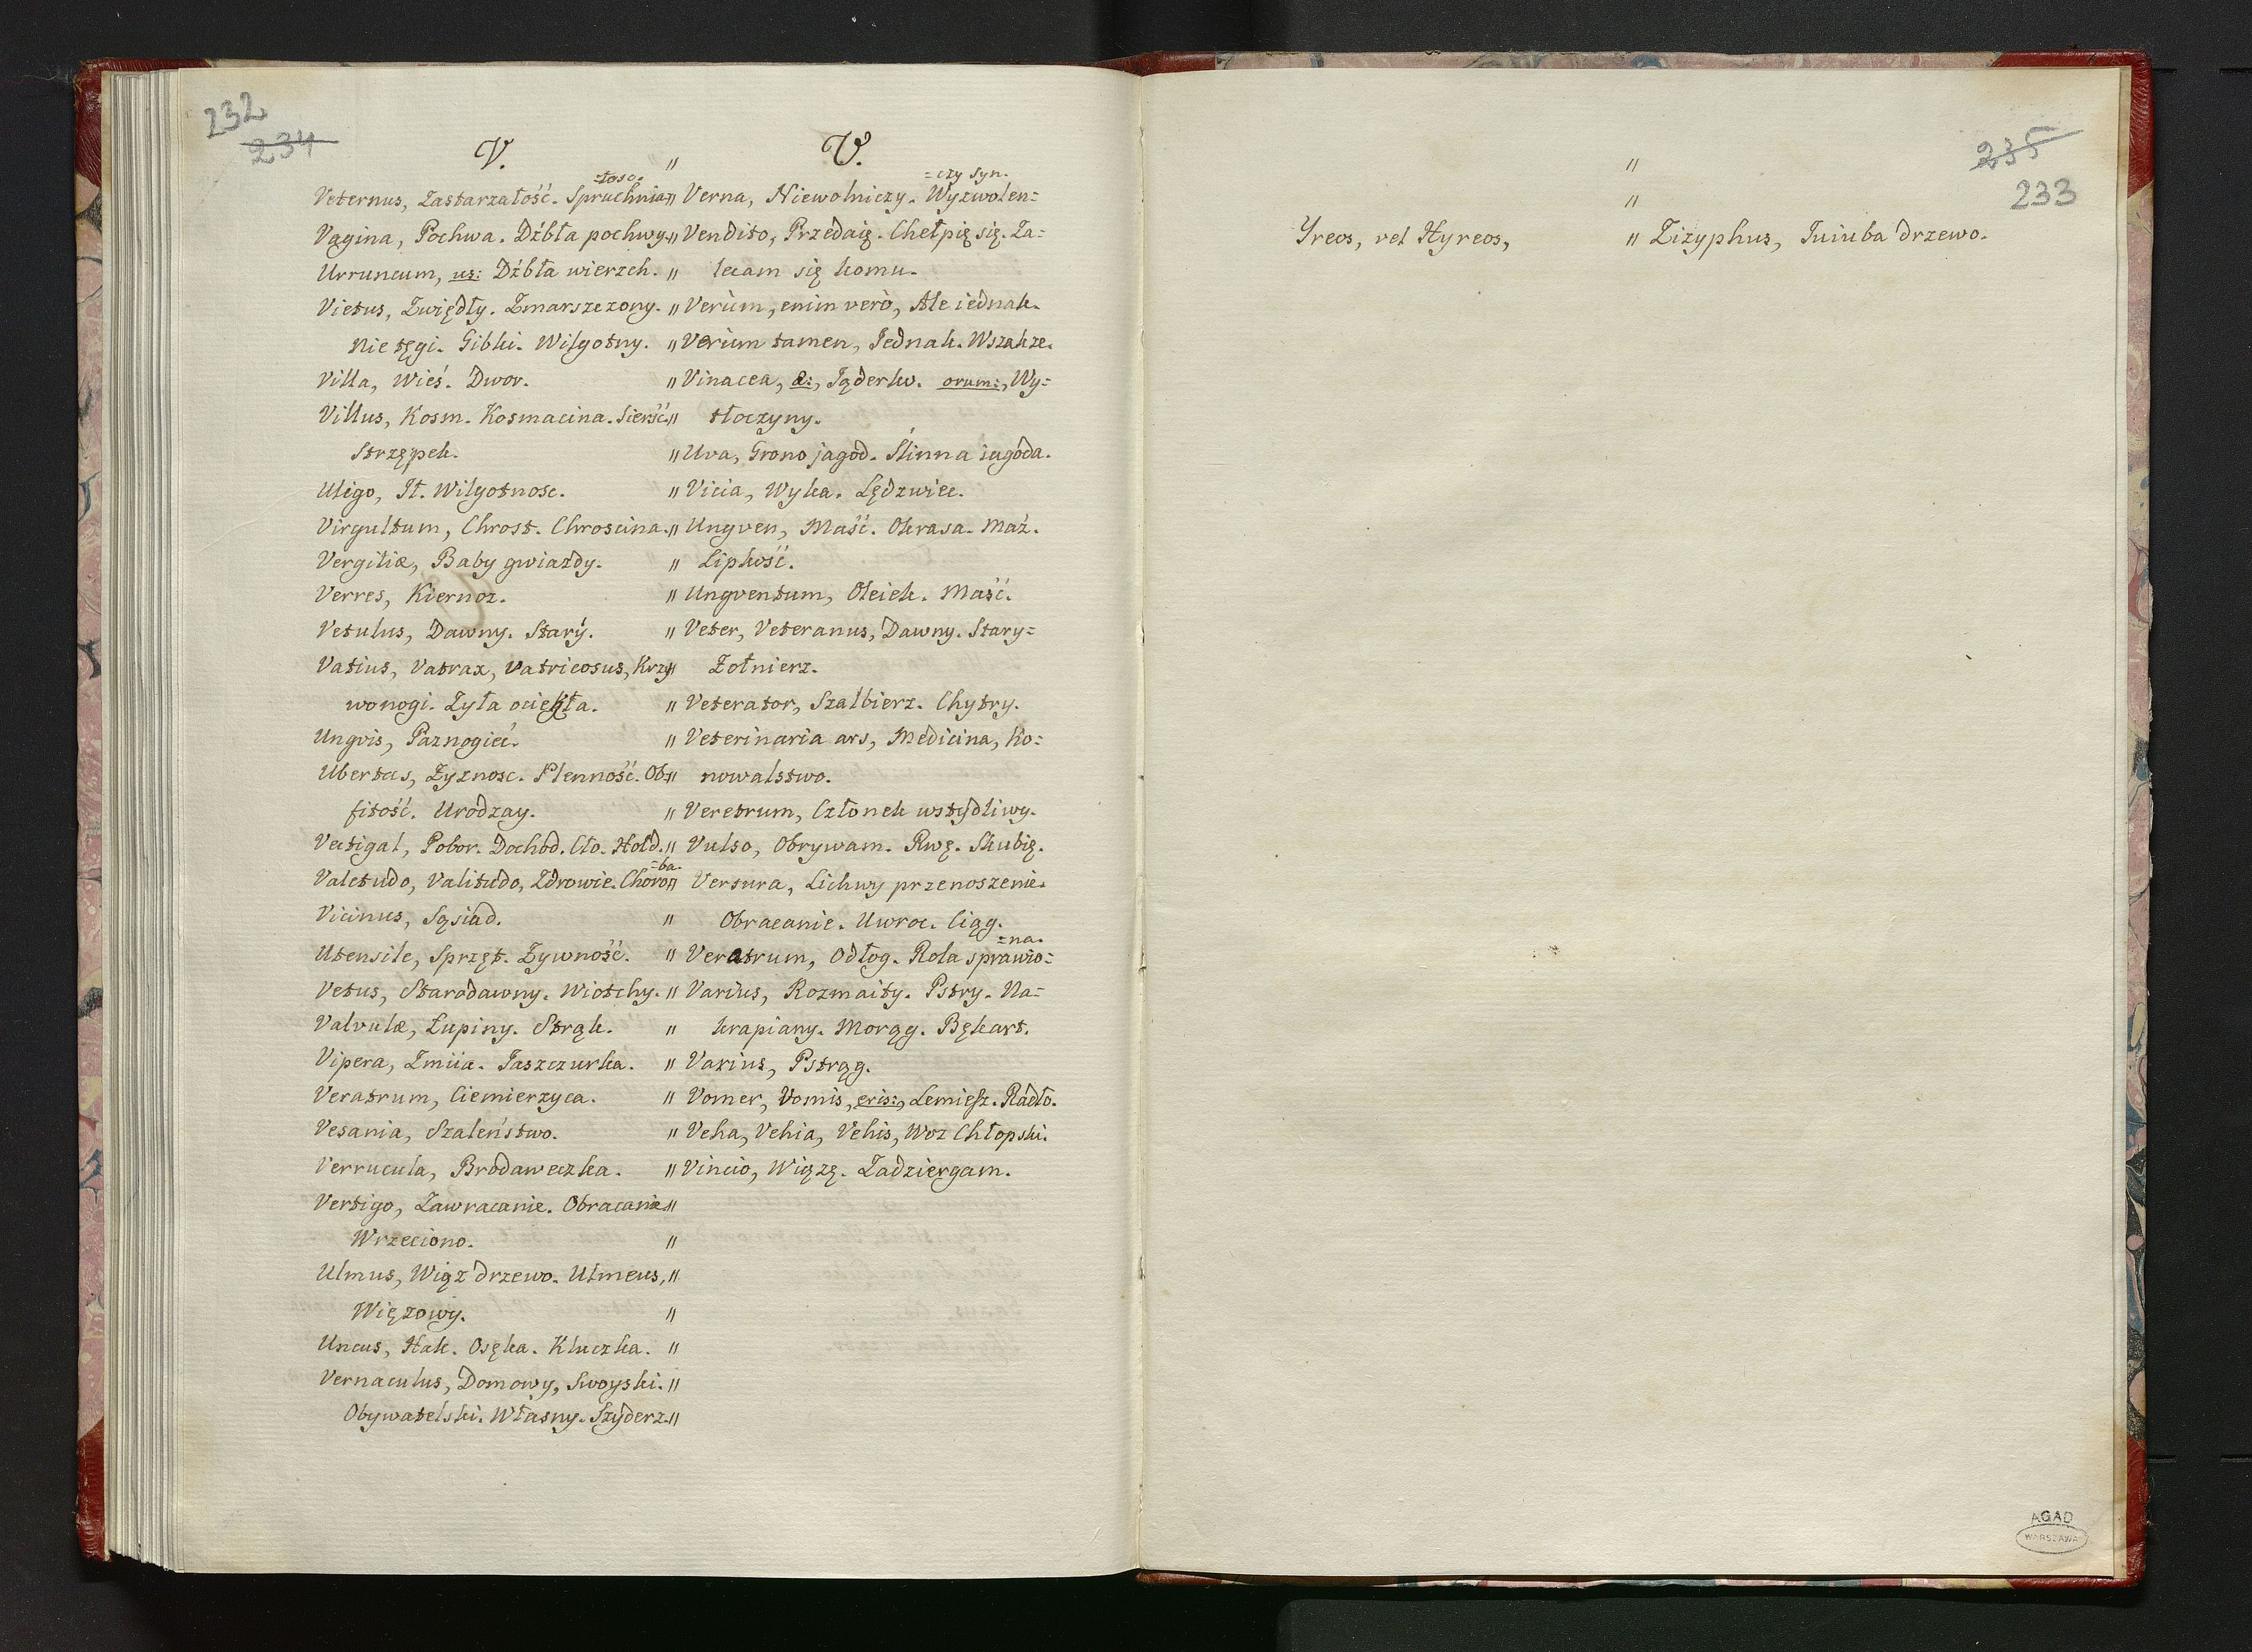 232
234
V.
=tosc.
Veternus, Zastarzałość. Spruchnia=
Vagina, Pochwa. Dźbła pochwy.
Urruncum, us: Dźbła wierzch.
Vietus, Zwiędły. Zmarszczony.
Nie tęgi. Gibki. Wilgotny.
Villa, Wieś. Dwor.
Villus, Kosm. Kosmacina. Sierść.
Strzępek.
Uligo, It. Wilgotnosc.
Virgultum, Chrost. Chroscina.
Vergiliæ, Baby gwiazdy.
Verres, Kiernoz.
Vetulus, Dawny. Stary.
Vatius, Vatrax, Vatricosus, Krzy
wonogi. Zyła ociekła.
Ungvis, Paznogieć.
Ubertas, Zyznosc. Plenność. Ob=
fitość. Urodzay.
Vectigal, Pobor. Dochod. Cło. Hołd.
=ba.
Valetudo, Valitudo, Zdrowie. Choro=
Vicinus, Sąsiad.
Utensile, Sprzęt. Zywność.
Vetus, Starodawny. Wiotchy.
Valvulæ, Łupiny. Strąk.
Vipera, Zmiia. Jaszczurka.
Veratrum, Ciemierzyca.
Vesania, Szaleństwo.
Verrucula, Brodaweczka.
Vertigo, Zawracanie. Obracanie
Wrzeciono.
Ulmus, Wiąz drzewo. Ulmeus,
Więzowy.
Uncus, Hak. Osęka. Kluczka.
Vernaculus, Domowy, Swoyski.
Obywatelski. Własny. Szyderz.
V.
=czy syn.
Verna, Niewolniczy. Wyzwolen=
Vendito, Przedaię. Chełpię się. Za=
lecam się komu.
Verùm, enim verò, Ale iednak.
Verùm tamen, Jednak. Wszakze.
Vinacea, æ:, Jąderko. orum:, Wy=
tłoczyny.
Uva, Grono jagod. Slinna iagoda.
Vicia, Wyka. Lędzwiec.
Ungven, Maść. Okrasa. Maź.
Lipkość.
Ungventum, Oleiek. Maść.
Veter, Veteranus, Dawny. Stary=
Zołnierz.
Veterator, Szalbierz. Chytry.
Veterinaria ars, Medicina, Ko=
nowalstwo.
Veretrum, Członek wstydliwy.
Vulso, Obrywam. Rwę. Skubię.
Versura, Lichwy przenoszenie.
Obracanie. Uwroc. Ciąg.
=na.
Veratrum, Odłog. Rola sprawio=
Varius, Rozmaity. Pstry. Na=
krapiany. Morąg. Bękart.
Varius, Pstrąg.
Vomer, Vomis, eris:, Lemiesz. Radło.
Veha, Vehia, Vehis, Woz Chłopski.
Vincio, Wiązę. Zadziergam.
235
233
Yreos, vel Hyreos, " Zizyphus, Juiuba drzewo.
AGAD
WARSZAWA